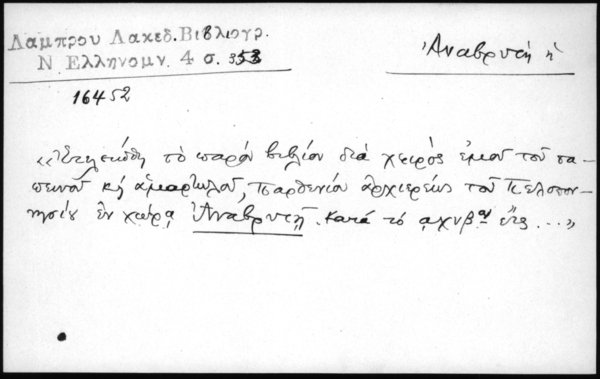 Λαμπρου Λακεδ. Βιβλιογρ.
Ν. Ελληνομν. 4 σ. 353
Ἀναβρυτὴ ἡ
16452
«Ἐτελειώθη τὸ παρὸν βιβλίον διὰ χειρὸς ἐμοῦ τοῦ τα-
πεινοῦ κὴ ἁμαρτωλοῦ, Παρθενίου ἀρχιερέως τοῦ Πελοπον-
νησίου ἐν χώρᾳ Ἀναβρυτῇ. κατὰ τὸ αχνβον ἔτς ...»